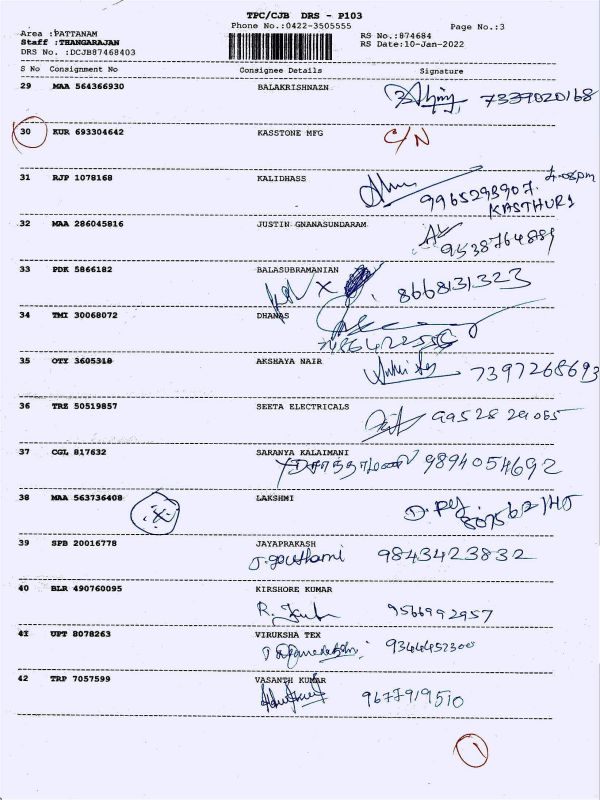 TPC/CJB DRS - P103
Phone No.:0422-3505555
Page No.:3
Area :PATTANAM
Staff :THANGARAJAN
DRS No. :DCJB87468403
RS No.:874684
RS Date:10-Jan-2022
S No Consignment No Consignee Details Signature
29 MAA 564366930 BALAKRISHNAZN 7339020168
30 KUR 693304642 KASSTONE MFG C/N
31 RJP 1078168 KALIDHASS 4.08pm
9965293907.
KASTHURI
32 MAA 286045816 JUSTIN GNANASUNDARAM
9538764889
33 PDK 5866182 BALASUBRAMANIAN
X 8668131323
34 TMI 30068072 DHANAS
35 OTY 3605318 AKSHAYA NAIR
7397268693
36 TRZ 50519857 SEETA ELECTRICALS
9952829055
37 CGL 817632 SARANYA KALAIMANI
9894054692
38 MAA 563736408 LAKSHMI
39 SPB 20016778 JAYAPRAKASH
J.gouthami 9843423832
40 BLR 490760095 KIRSHORE KUMAR
R. 9566992957
41 UPT 8078263 VIRUKSHA TEX
9344452300
42 TRP 7057599 VASANTH KUMAR
9677919510
1